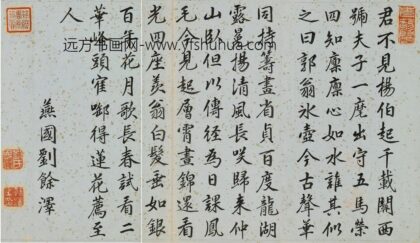 君不見楊伯起千載關西
號夫子一麾出守五馬榮
四知凜凜心如水誰其似
之曰郭翁冰壺今古聲華
同持籌畫省貞百度龍湖
露冕揚清風長笑歸來仲
山臥但以傳經為日課鳳
毛今見起層霄晝錦還看
光四座羨翁白髮垂如銀
百年花月歌長春試看二
華峰頭窅啣得蓮花薦至
人
燕國劉餘澤
远方书画网 www.yfshuhua.com